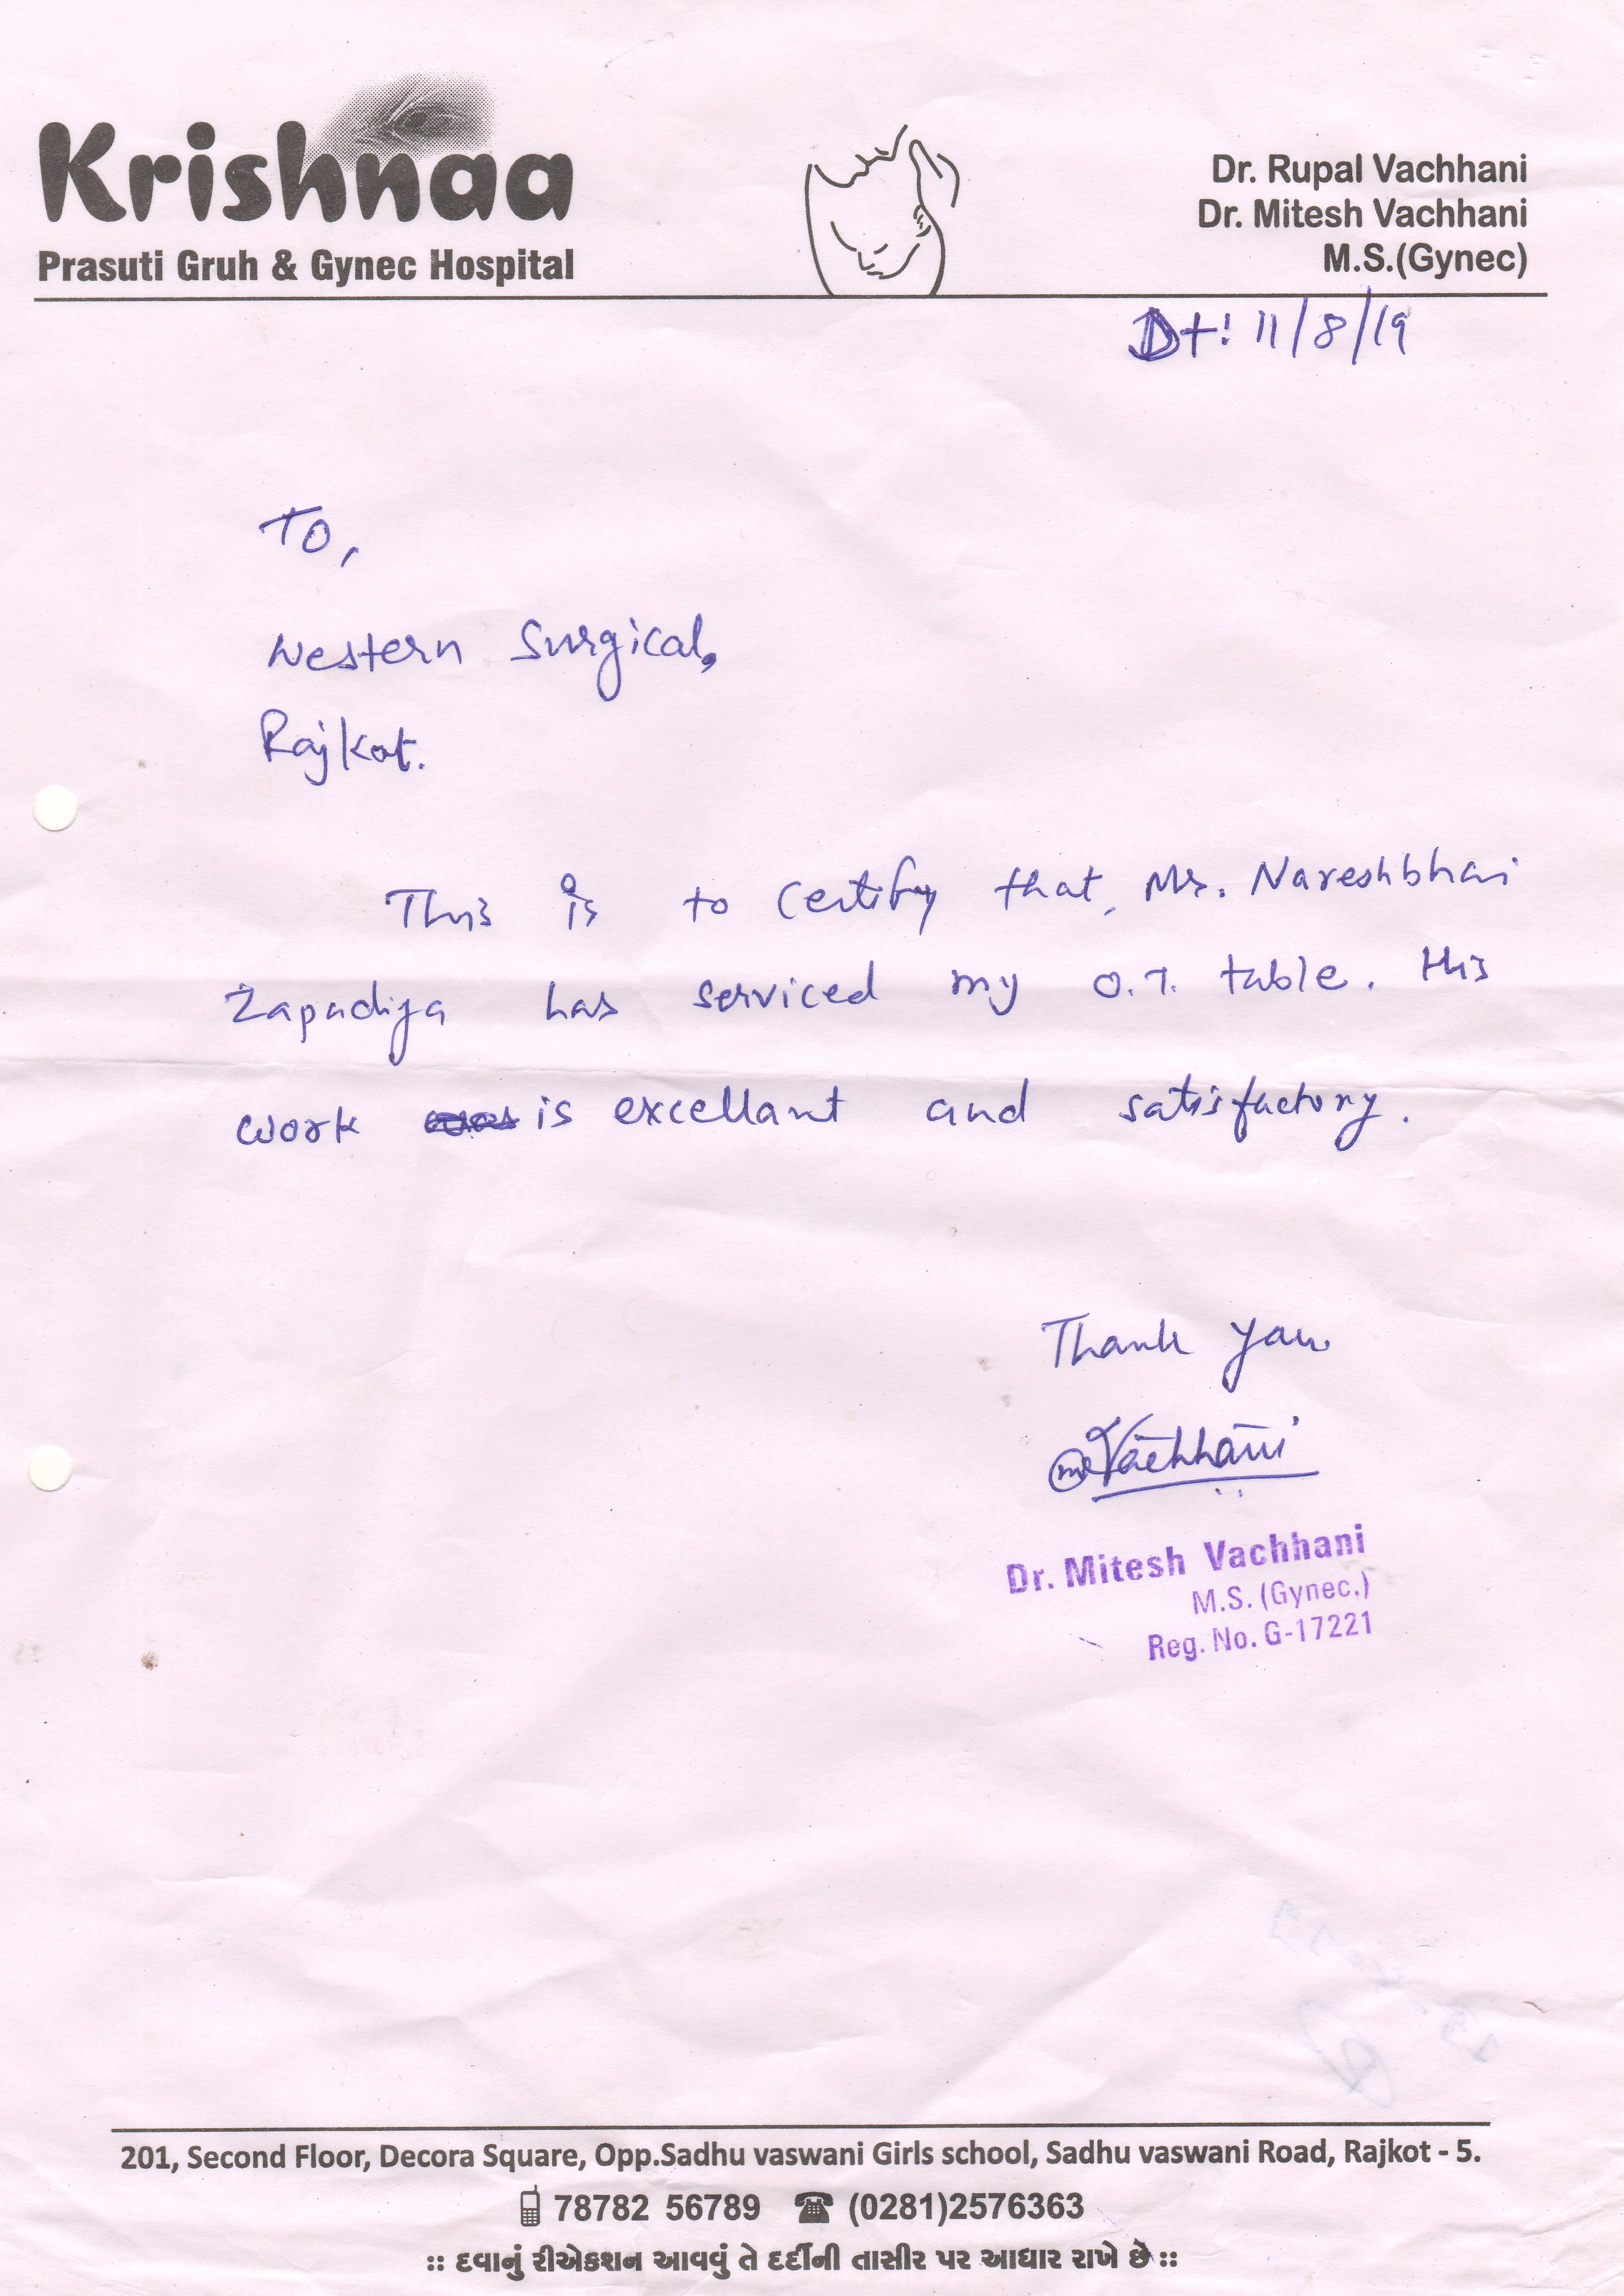 Krishnaa
Prasuti Gruh & Gynec Hospital
Dr. Rupal Vachhani
Dr. Mitesh Vachhani
M.S.(Gynec)
Dt: 11/8/19
To,
Western Surgical,
Rajkot.
This is to certify that, Mr. Nareshbhai
Zapadiya has serviced my O.T. table. His
work is excellant and satisfactory.
Thank you
Vachhani
Dr. Mitesh Vachhani
M.S. (Gynec.)
Reg. No. G-17221
201, Second Floor, Decora Square, Opp.Sadhu vaswani Girls school, Sadhu vaswani Road, Rajkot - 5.
78782 56789 (0281)2576363
:: દવાનું રીએકશન આવવું તે દર્દીની તાસીર પર આધાર રાખે છે ::